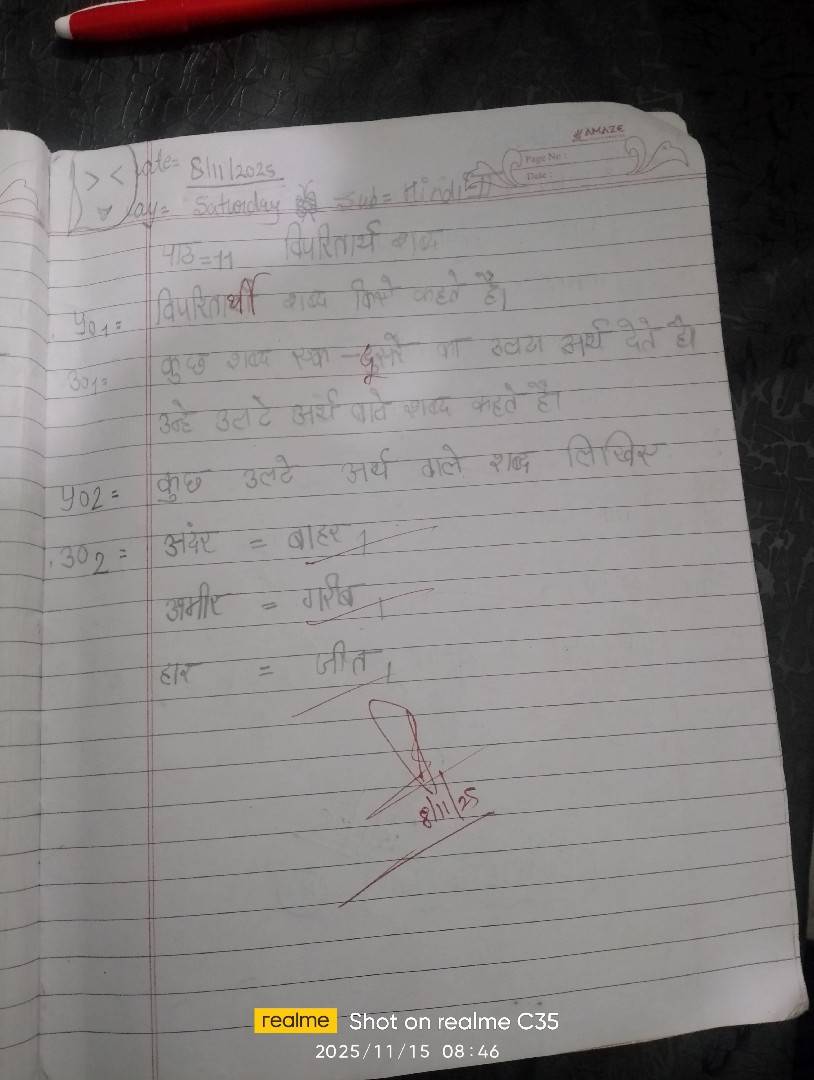 AMAZE
Page No :
Date :
Date= 8/11/2025
Day= Saturday Sub= Hindi
पाठ=11 विपरितार्थ शब्द
प्र01= विपरितार्थी शब्द किसे कहते है।
उ01= कुछ शब्द एक-दूसरे का उलटा अर्थ देते है।
उन्हे उलटे अर्थ वाले शब्द कहते है।
प्र02= कुछ उलटे अर्थ वाले शब्द लिखिए
उ02= अंदर = बाहर।
अमीर = गरीब।
हार = जीत।
8/11/25
realme Shot on realme C35
2025/11/15 08:46